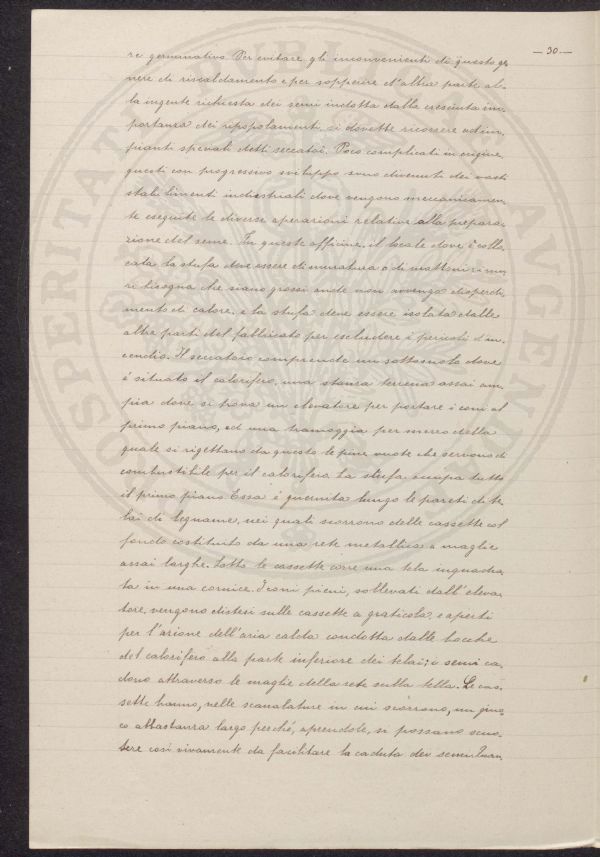 — 30 —
re germinativo. Per evitare gli inconvenienti di questo ge
nere di riscaldamento e per sopperire d'altra parte al-
la ingente richiesta dei semi indotta dalla cresciuta im-
portanza dei ripopolamenti, si dovette ricorrere ad im-
pianti speciali detti seccatoi. Poco complicati in origine,
questi con progressivo sviluppo sono divenuti dei vasti
stabilimenti industriali dove vengono meccanicamen-
te eseguite le diverse operazioni relative alla prepara-
zione del seme. In queste officine, il locale dove è collo-
cata la stufa deve essere di muratura o di mattoni i mu-
ri bisogna che siano grossi onde non avvenga disperdi-
mento di calore, e la stufa deve essere isolata dalle
altre parti del fabbricato per escludere i pericoli d'in-
cendio. Il seccatoio comprende un sottosuolo dove
è situato il calorifero, una stanza terrena assai am-
pia dove si trova un elevatore per portare i coni al
primo piano, ed una tramoggia per mezzo della
quale si rigettano da questo le pine vuote che servono di
combustibile per il calorifero. La stufa occupa tutto
il primo piano. Essa è guernita lungo le pareti di te-
lai di legname, nei quali scorrono delle cassette col
fondo costituito da una rete metallica a maglie
assai larghe. Sotto le cassette corre una tela inquadra-
ta in una cornice. I coni pieni, sollevati dall'eleva-
tore, vengono distesi sulle cassette a graticola, e aperti
per l'azione dell'aria calda condotta dalle bocche
del calorifero alla parte inferiore dei telai; i semi ca-
dono attraverso le maglie della rete sulla tella. Le cas-
sette hanno, nelle scanalature in cui scorrono, un giuo-
co abbastanza largo perché, aprendole, si possano scuo-
tere così vivamente da facilitare la caduta dei semi. Quan-